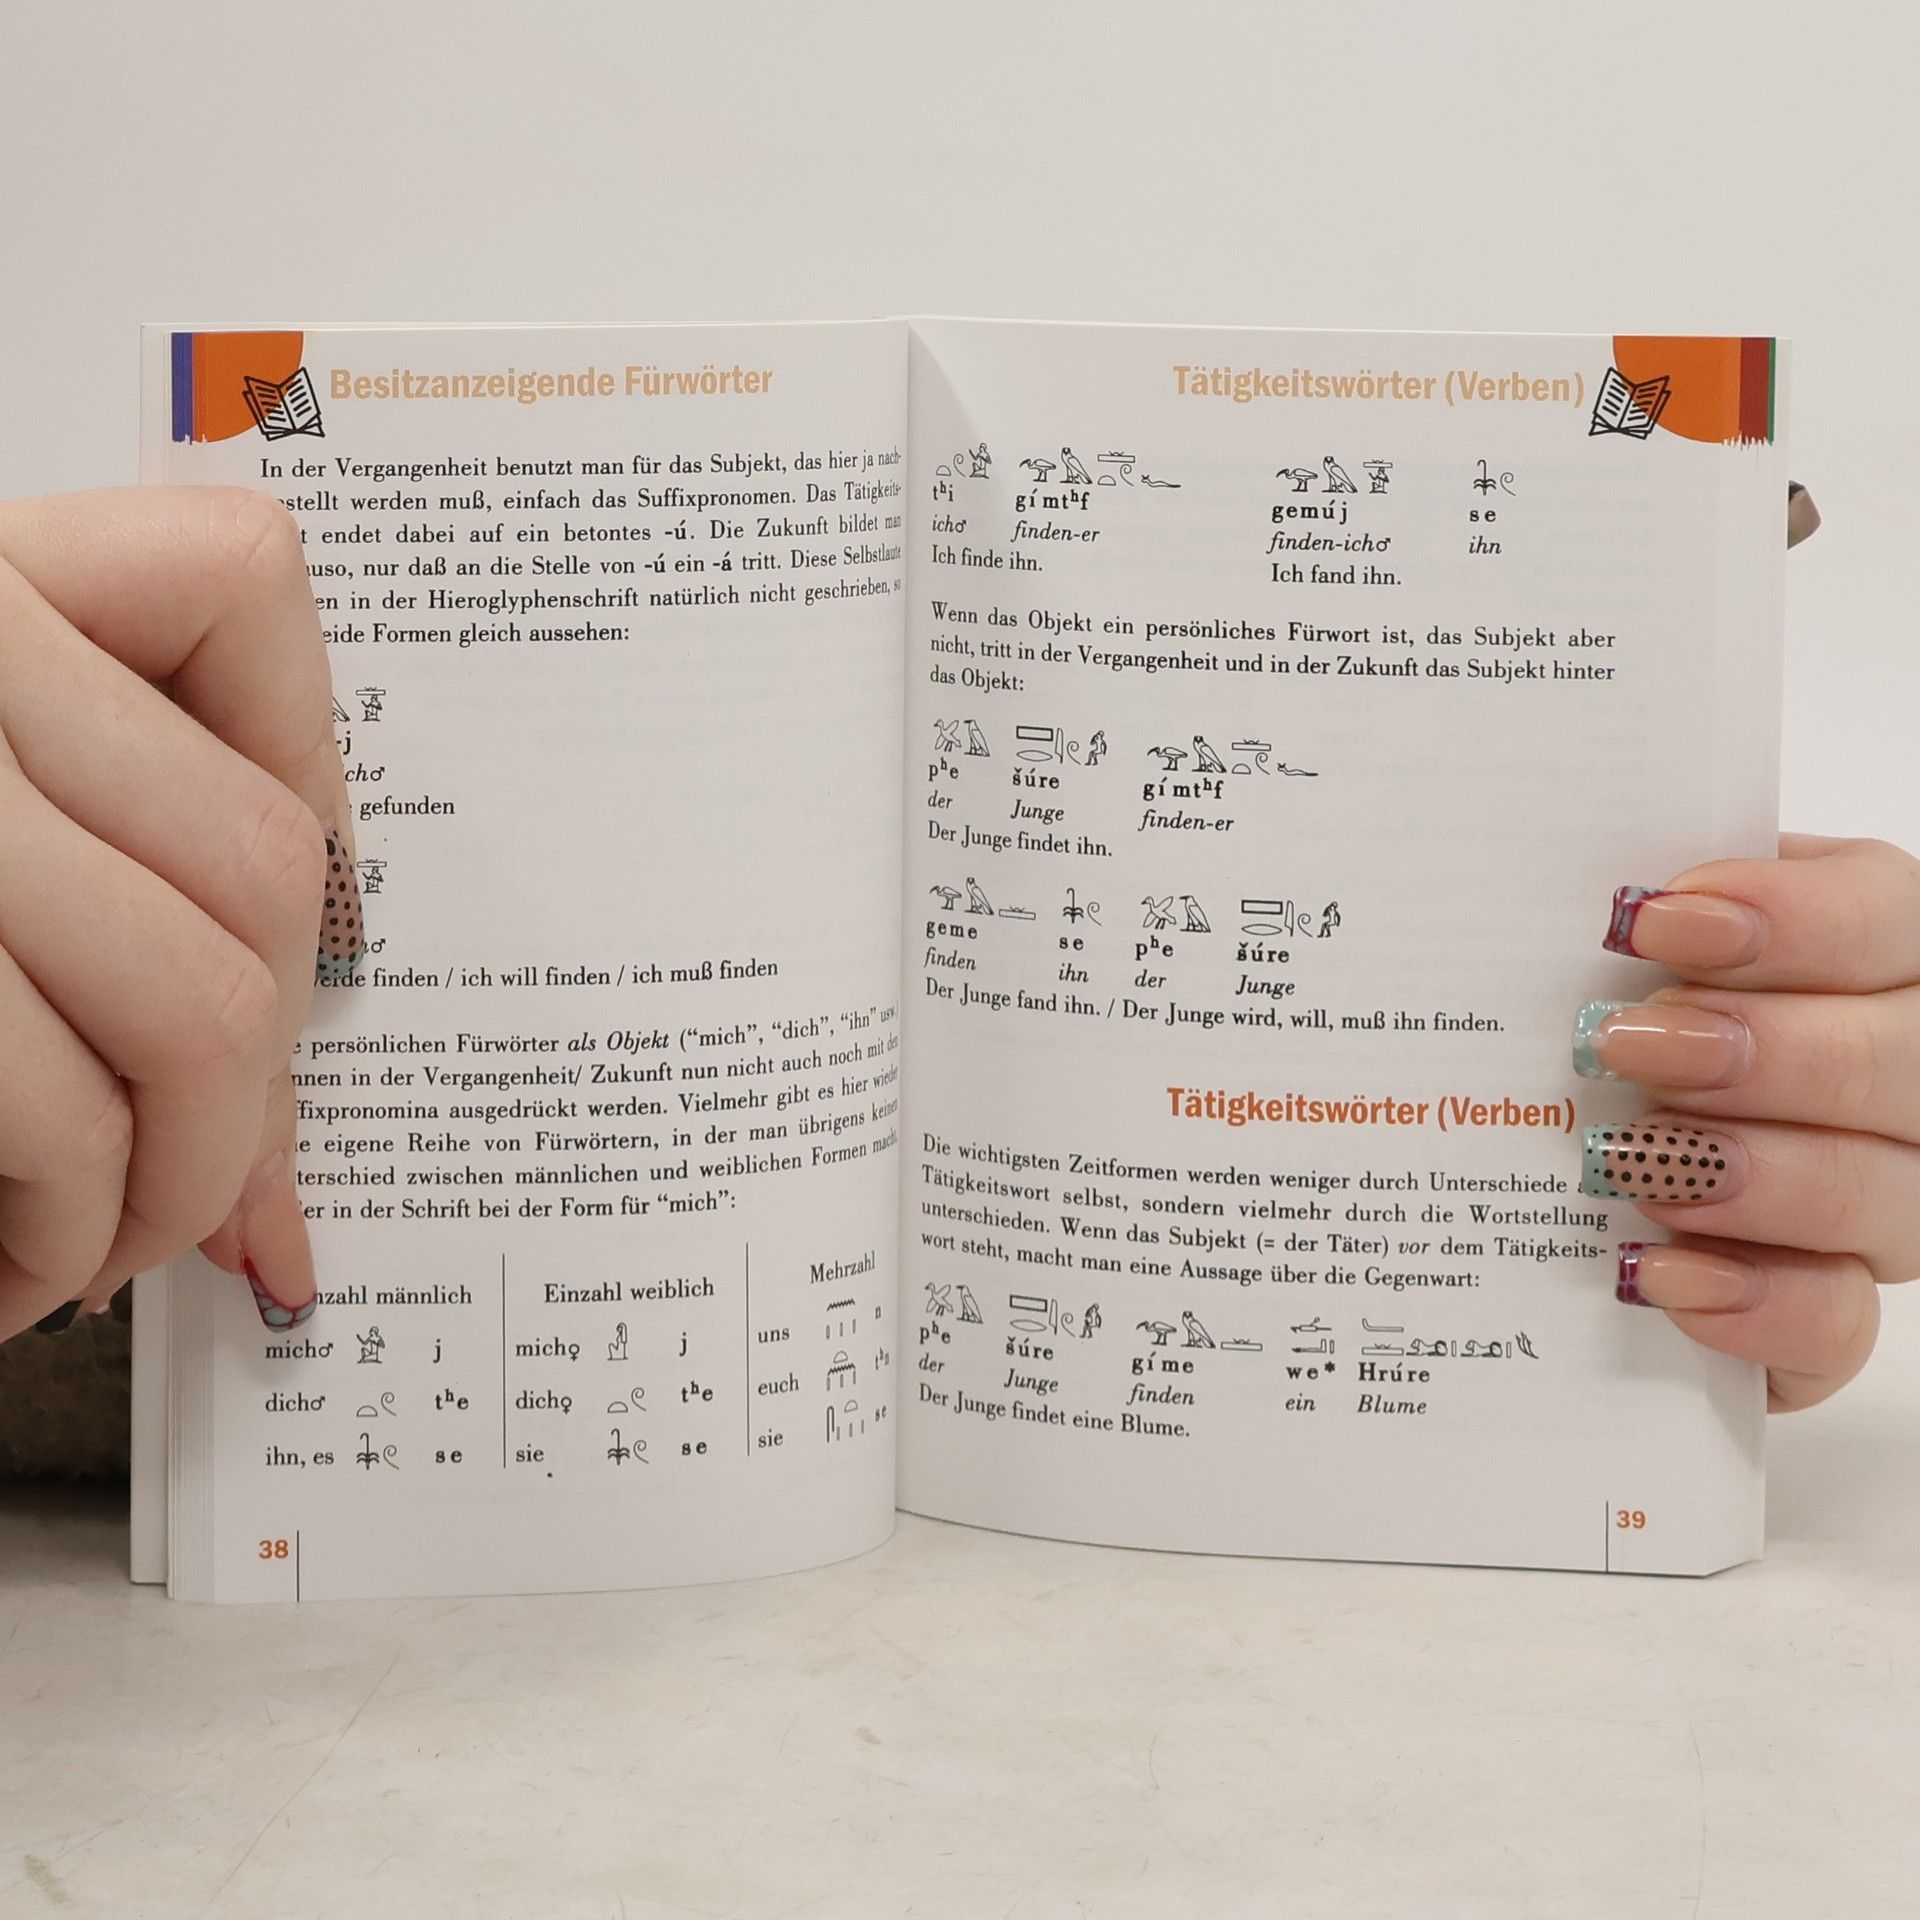 Besitzanzeigende Fürwörter
In der Vergangenheit benutzt man für das Subjekt, das hier ja nach-
stellt werden muß, einfach das Suffixpronomen. Das Tätigkeits-
endet dabei auf ein betontes -ú. Die Zukunft bildet man
uso, nur daß an die Stelle von -ú ein -á tritt. Diese Selbstlaute
en in der Hieroglyphenschrift natürlich nicht geschrieben, so
eide Formen gleich aussehen:
-j
ch♂
gefunden
♂
erde finden / ich will finden / ich muß finden
persönlichen Fürwörter als Objekt (“mich”, “dich”, “ihn” usw.)
nnen in der Vergangenheit/ Zukunft nun nicht auch noch mit den
ffixpronomina ausgedrückt werden. Vielmehr gibt es hier wieder
eigene Reihe von Fürwörtern, in der man übrigens keinen
terschied zwischen männlichen und weiblichen Formen macht,
er in der Schrift bei der Form für “mich”:
nzahl männlich Einzahl weiblich Mehrzahl
mich♂ j mich♀ j uns n
dich♂ tʰe dich♀ tʰe euch tʰn
ihn, es se sie se sie se
38
Tätigkeitswörter (Verben)
tʰi gímtʰf gemúj se
ich♂ finden-er finden-ich♂ ihn
Ich finde ihn. Ich fand ihn.
Wenn das Objekt ein persönliches Fürwort ist, das Subjekt aber
nicht, tritt in der Vergangenheit und in der Zukunft das Subjekt hinter
das Objekt:
pʰe šúre gímtʰf
der Junge finden-er
Der Junge findet ihn.
geme se pʰe šúre
finden ihn der Junge
Der Junge fand ihn. / Der Junge wird, will, muß ihn finden.
Tätigkeitswörter (Verben)
Die wichtigsten Zeitformen werden weniger durch Unterschiede
Tätigkeitswort selbst, sondern vielmehr durch die Wortstellung
unterschieden. Wenn das Subjekt (= der Täter) vor dem Tätigkeits-
wort steht, macht man eine Aussage über die Gegenwart:
pʰe šúre gíme we* Hrúre
der Junge finden ein Blume
Der Junge findet eine Blume.
39